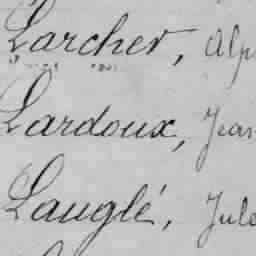 Larcher, Alp
Lardoux, Jean
Lauglé, Jule